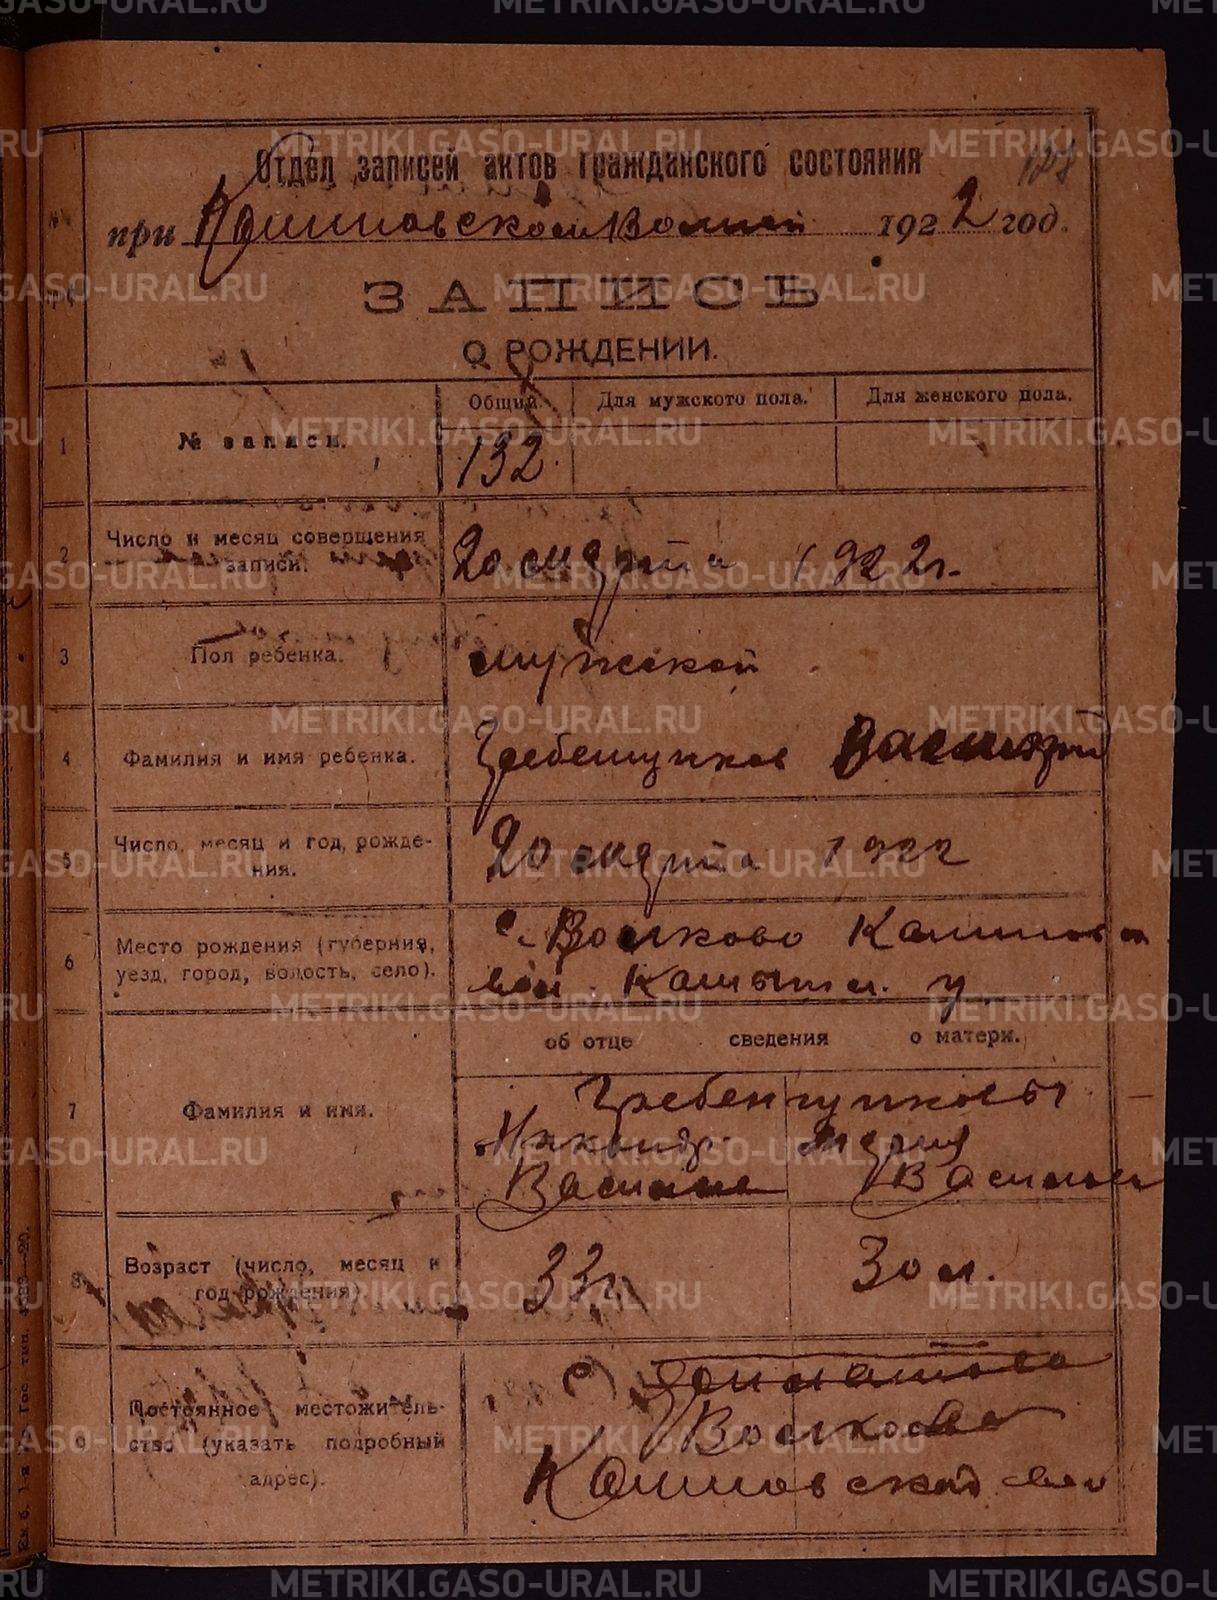 METRIKI.GASO-URAL.RU
Отдел записей актов гражданского состояния
при 1922 год.
ЗАПИСЬ
О РОЖДЕНИИ.
Общий. Для мужского пола. Для женского пола.
1 № записи. 132
2 Число и месяц совершения записи. 20 марта 1922 г.
3 Пол ребенка. мужской
4 Фамилия и имя ребенка. Гребенщиков Василий
5 Число, месяц и год, рожде-
ния. 20 марта 1922
6 Место рождения (губерния,
уезд, город, волость, село). с. Волково
вол. Камышл. у.
об отце сведения о матери.
7 Фамилия и имя. Гребенщиковы
Никандр Мария
Василье Василье
8 Возраст (число, месяц и
год рождения) 33 г. 30 л.
9 Постоянное местожитель-
ство (указать подробный
адрес). с.
Волкова